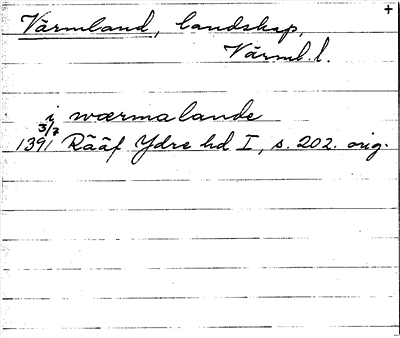 +
Värmland, landskap,
Värml. l.
i wærmalande
3/7
1391 Rääf Ydre hd I, s. 202. orig.